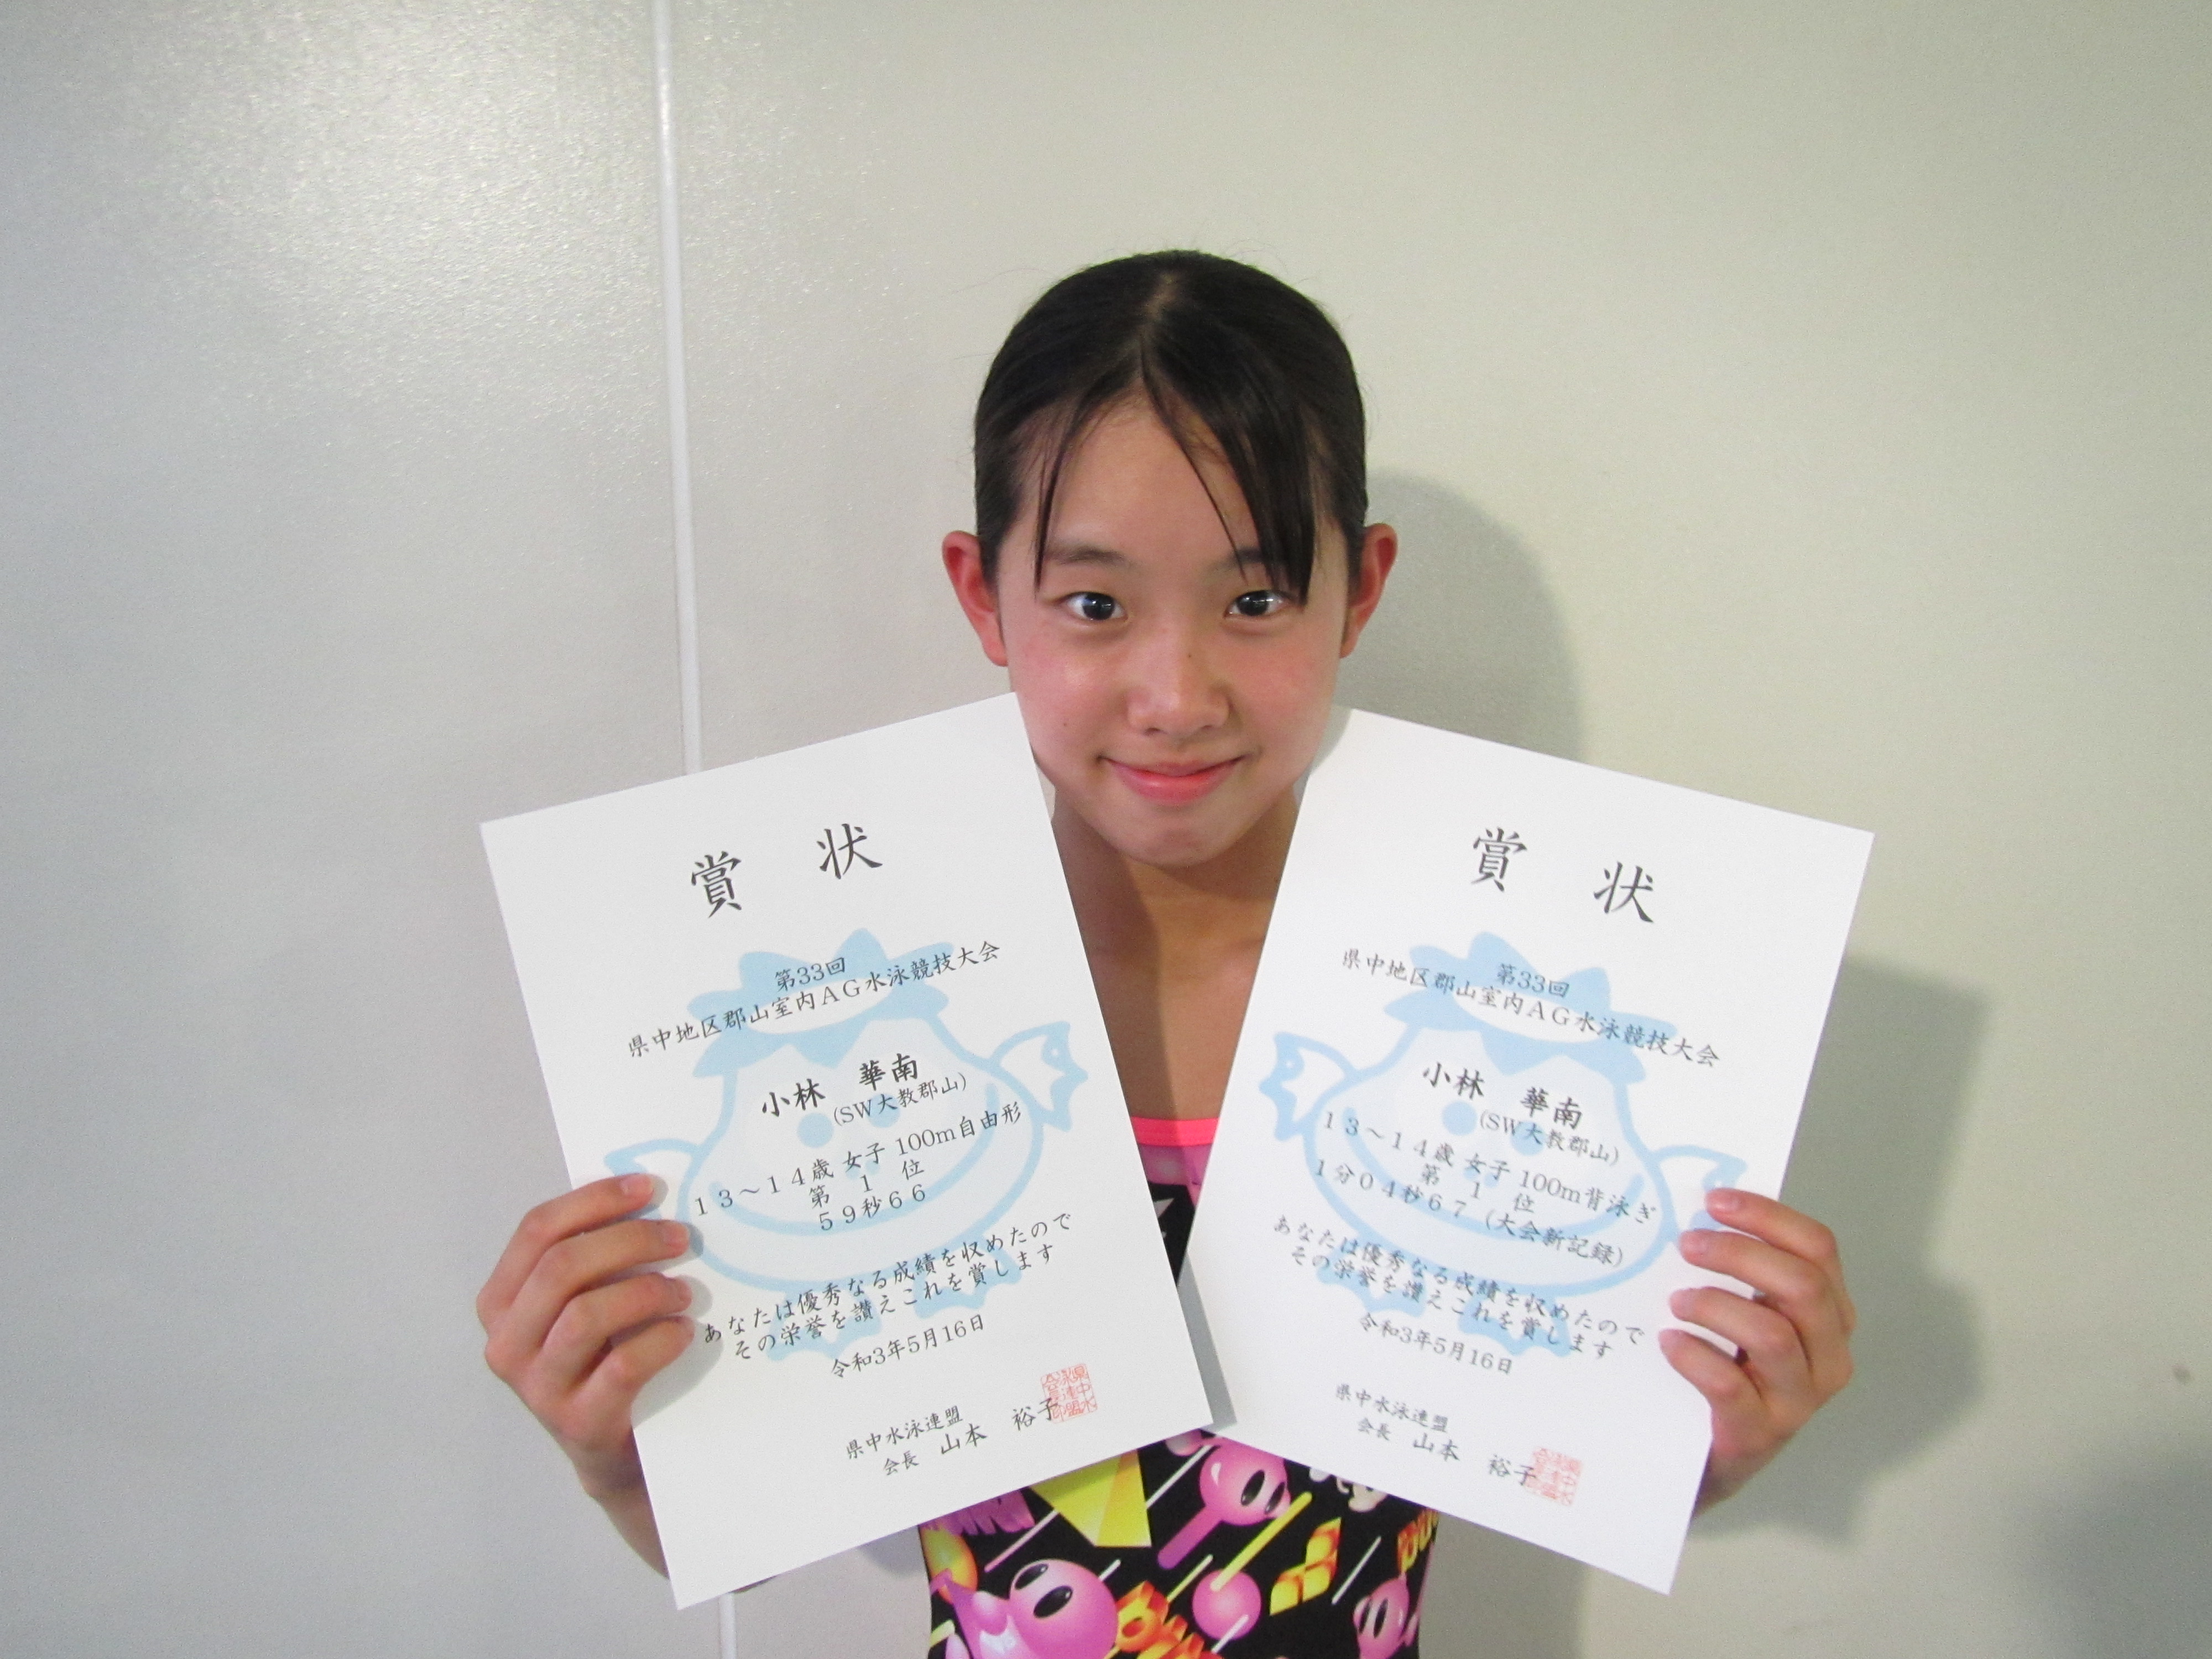 賞 状
第33回
県中地区郡山室内AG水泳競技大会
小林 華南
(SW大教郡山)
13～14歳 女子 100m自由形
第 1 位
59秒66
あなたは優秀なる成績を収めたので
その栄誉を讃えこれを賞します
令和3年5月16日
県中水泳連盟
会長 山本 裕子
賞 状
第33回
県中地区郡山室内AG水泳競技大会
小林 華南
(SW大教郡山)
13～14歳 女子 100m背泳ぎ
第 1 位
1分04秒67 (大会新記録)
あなたは優秀なる成績を収めたので
その栄誉を讃えこれを賞します
令和3年5月16日
県中水泳連盟
会長 山本 裕子